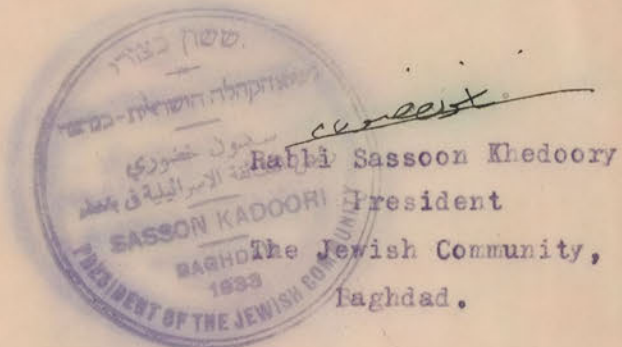 ששון
הקהלה הישראלית-
خضوري
الاسرائيلية في
SASSON KADOORI
BAGHD
1933
PRESIDENT OF THE JEWISH COMMUNITY
Rabbi Sassoon Khedoory
President
The Jewish Community,
Baghdad.